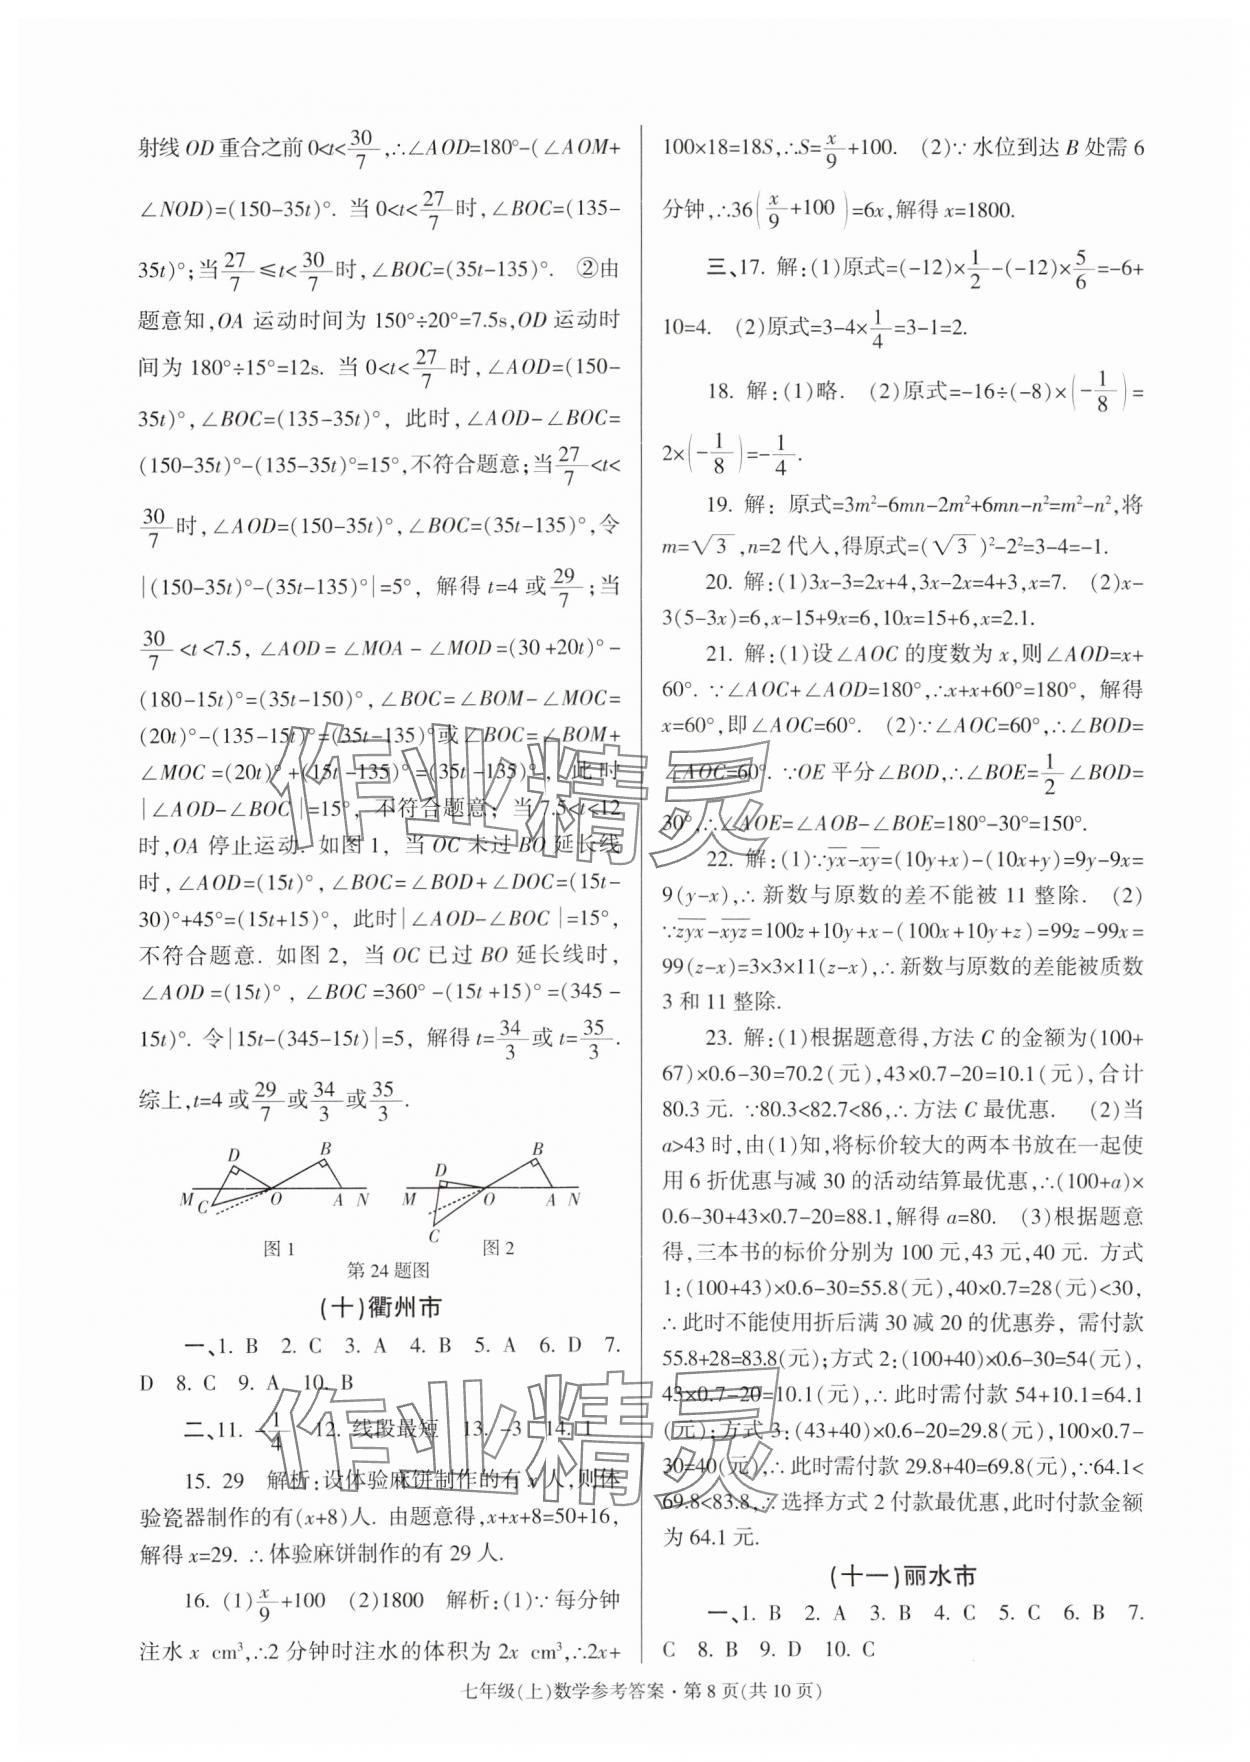 射线OD重合之前0<t<30/7,∴∠AOD=180°-(∠AOM+
∠NOD)=(150-35t)°. 当0<t<27/7时,∠BOC=(135-
35t)°;当27/7≤t<30/7时,∠BOC=(35t-135)°. ②由
题意知,OA运动时间为150°÷20°=7.5s,OD运动时
间为180°÷15°=12s. 当0<t<27/7时,∠AOD=(150-
35t)°,∠BOC=(135-35t)°, 此时,∠AOD-∠BOC=
(150-35t)°-(135-35t)°=15°,不符合题意;当27/7<t<
30/7时,∠AOD=(150-35t)°,∠BOC=(35t-135)°,令
|(150-35t)°-(35t-135)°|=5°, 解得t=4或29/7;当
30/7<t<7.5,∠AOD=∠MOA-∠MOD=(30+20t)°-
(180-15t)°=(35t-150)°,∠BOC=∠BOM-∠MOC=
(20t)°-(135-15t)°=(35t-135)°或∠BOC=∠BOM+
∠MOC=(20t)°+(15t-135)°=(35t-135)°, 此时
|∠AOD-∠BOC|=15°, 不符合题意; 当7.5<t<12
时,OA停止运动. 如图1, 当OC未过BO延长线
时,∠AOD=(15t)°,∠BOC=∠BOD+∠DOC=(15t-
30)°+45°=(15t+15)°, 此时|∠AOD-∠BOC|=15°,
不符合题意. 如图2, 当OC已过BO延长线时,
∠AOD=(15t)°,∠BOC=360°-(15t+15)°=(345-
15t)°. 令|15t-(345-15t)|=5, 解得t=34/3或t=35/3.
综上,t=4或29/7或34/3或35/3.
D B
M C O A N
图1
D B
M O A N
C
图2
第24题图
(十)衢州市
一、1. B 2. C 3. A 4. B 5. A 6. D 7.
D 8. C 9. A 10. B
二、11. -1/4 12. 线段最短 13. -3 14. 1
15. 29 解析:设体验麻饼制作的有x人,则体
验瓷器制作的有(x+8)人. 由题意得,x+x+8=50+16,
解得x=29. ∴体验麻饼制作的有29人.
16. (1)x/9+100 (2)1800 解析:(1)∵每分钟
注水x cm³,∴2分钟时注水的体积为2x cm³,∴2x+
100×18=18S,∴S=x/9+100. (2)∵水位到达B处需6
分钟,∴36(x/9+100)=6x,解得x=1800.
三、17. 解:(1)原式=(-12)×1/2-(-12)×5/6=-6+
10=4. (2)原式=3-4×1/4=3-1=2.
18. 解:(1)略. (2)原式=-16÷(-8)×(-1/8)=
2×(-1/8)=-1/4.
19. 解: 原式=3m²-6mn-2m²+6mn-n²=m²-n²,将
m=√3,n=2代入,得原式=(√3)²-2²=3-4=-1.
20. 解:(1)3x-3=2x+4,3x-2x=4+3,x=7. (2)x-
3(5-3x)=6,x-15+9x=6,10x=15+6,x=2.1.
21. 解:(1)设∠AOC的度数为x,则∠AOD=x+
60°. ∵∠AOC+∠AOD=180°,∴x+x+60°=180°, 解得
x=60°,即∠AOC=60°. (2)∵∠AOC=60°,∴∠BOD=
∠AOC=60°. ∵OE平分∠BOD,∴∠BOE=1/2∠BOD=
30°,∴∠AOE=∠AOB-∠BOE=180°-30°=150°.
22. 解:(1)∵y̅x̅-x̅y̅=(10y+x)-(10x+y)=9y-9x=
9(y-x),∴新数与原数的差不能被11整除. (2)
∵z̅y̅x̅-x̅y̅z̅=100z+10y+x-(100x+10y+z)=99z-99x=
99(z-x)=3×3×11(z-x),∴新数与原数的差能被质数
3和11整除.
23. 解:(1)根据题意得,方法C的金额为(100+
67)×0.6-30=70.2(元),43×0.7-20=10.1(元),合计
80.3元. ∵80.3<82.7<86,∴方法C最优惠. (2)当
a>43时,由(1)知,将标价较大的两本书放在一起使
用6折优惠与减30的活动结算最优惠,∴(100+a)×
0.6-30+43×0.7-20=88.1,解得a=80. (3)根据题意
得,三本书的标价分别为100元,43元,40元. 方式
1:(100+43)×0.6-30=55.8(元),40×0.7=28(元)<30,
∴此时不能使用折后满30减20的优惠券, 需付款
55.8+28=83.8(元);方式2:(100+40)×0.6-30=54(元),
43×0.7-20=10.1(元),∴此时需付款54+10.1=64.1
(元);方式3:(43+40)×0.6-20=29.8(元),100×0.7-
30=40(元),∴此时需付款29.8+40=69.8(元),∵64.1<
69.8<83.8,∴选择方式2付款最优惠,此时付款金额
为64.1元.
(十一)丽水市
一、1. B 2. A 3. B 4. C 5. C 6. B 7.
C 8. B 9. D 10. C
七年级(上)数学参考答案·第8页(共10页)
作业精灵
作业精灵